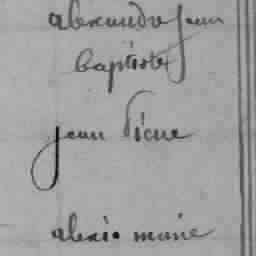 alexandre jean
baptiste
jean Piere
alexis marie